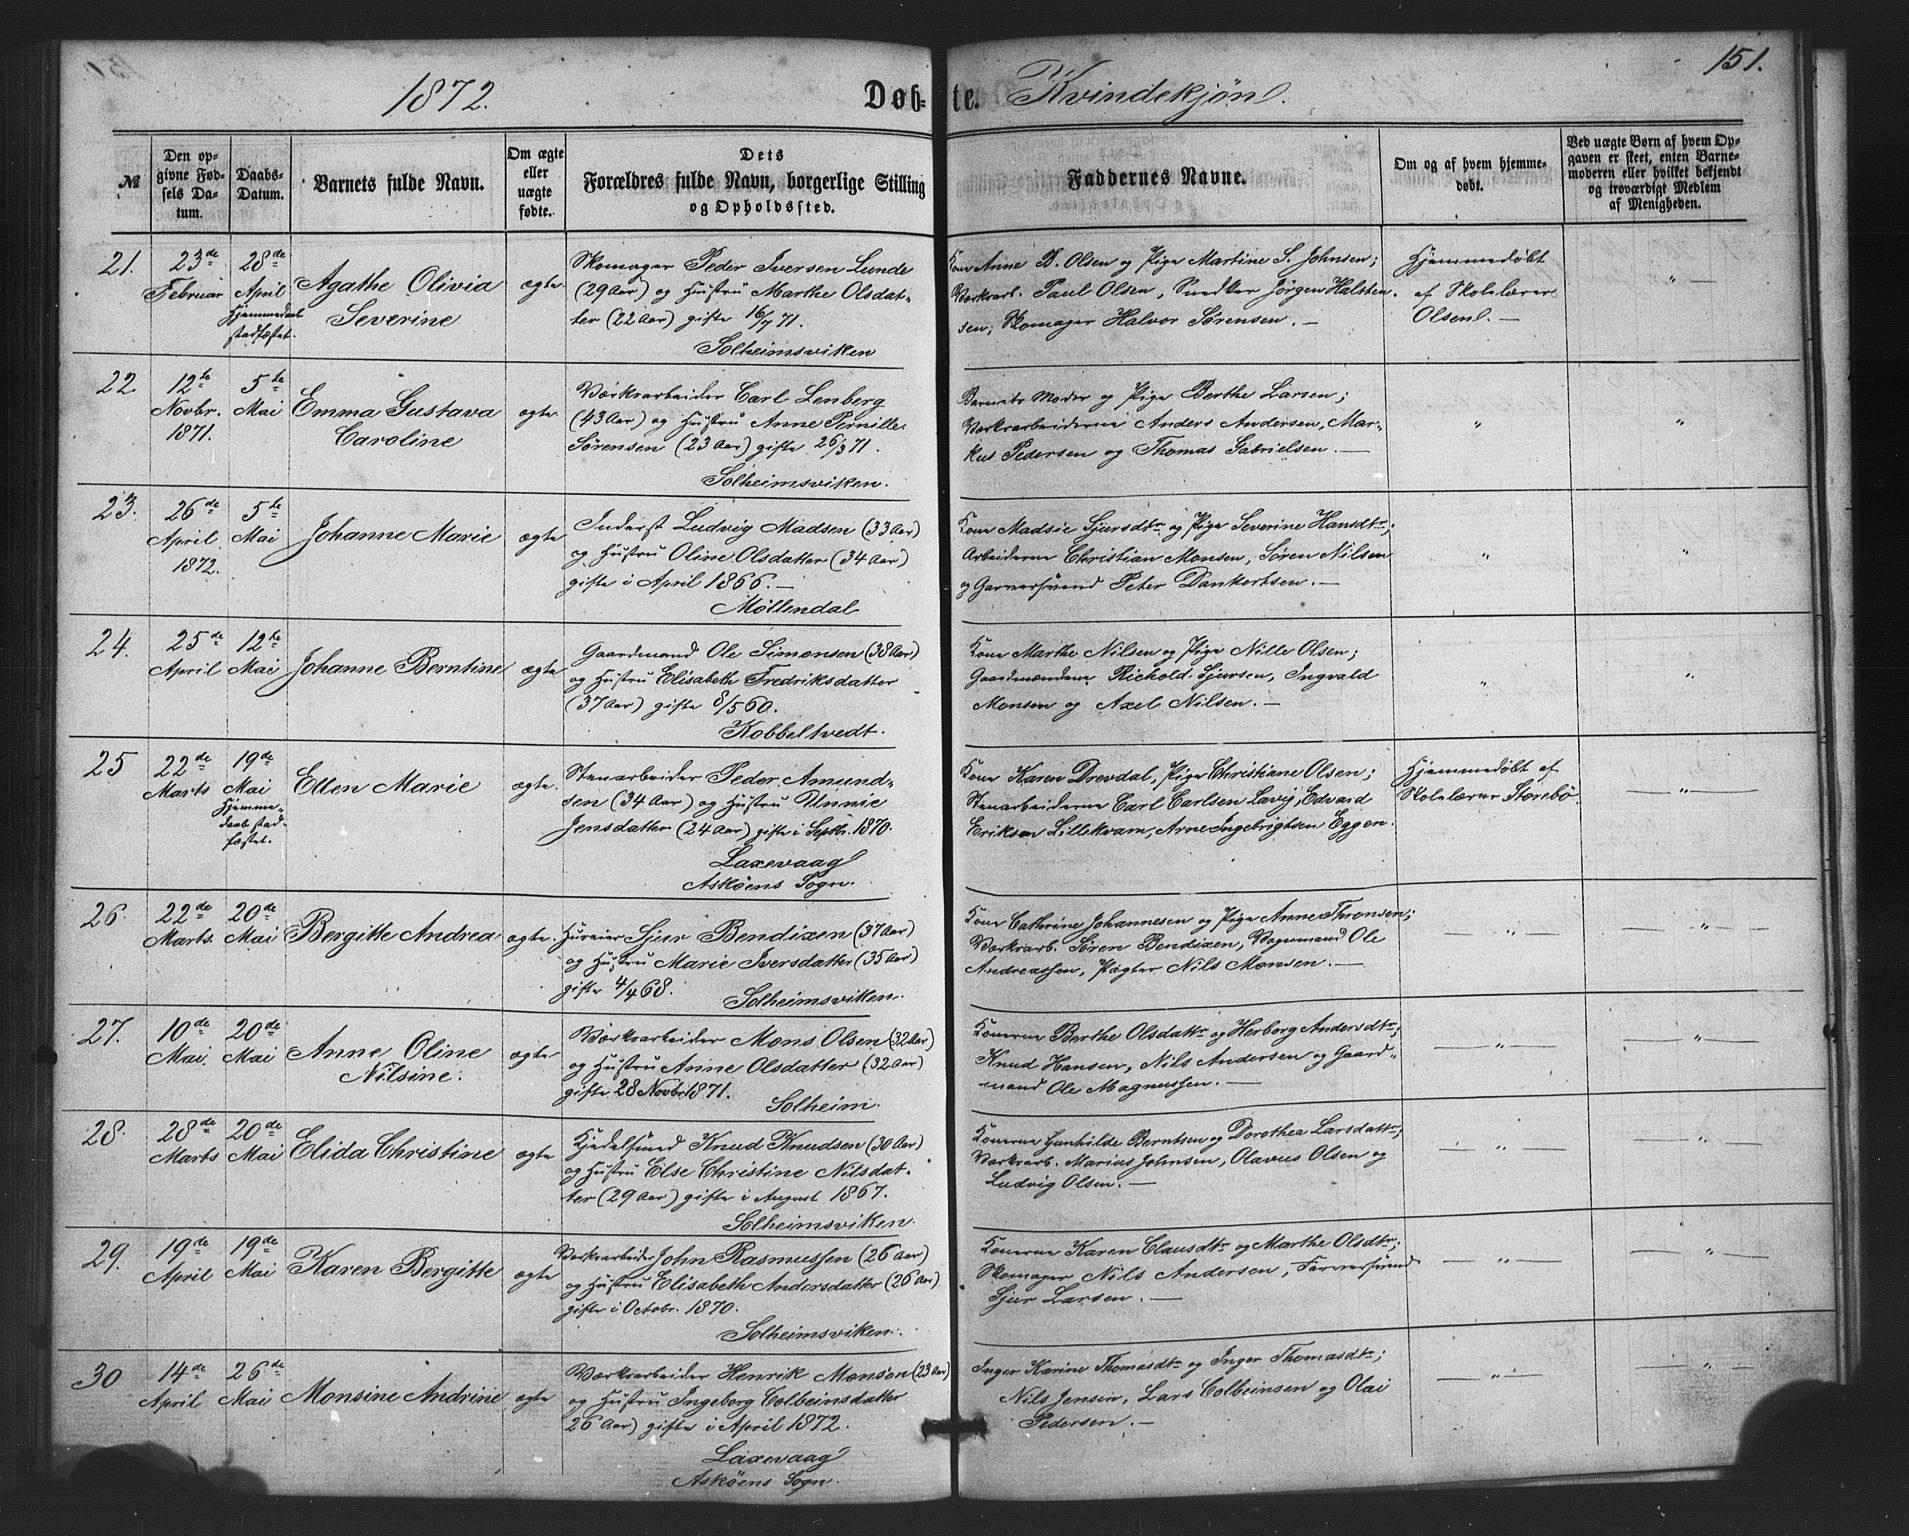 1872.
Döb-te.
Kvindekjøn.
151.
№
Den op-
givne Fød-
sels Da-
tum.
Daabs-
Datum.
Barnets fulde Navn.
Om ægte
eller
uægte
fødte.
Dets
Forældres fulde Navn, borgerlige Stilling
og Opholdssted.
Faddernes Navne.
Om og af hvem hjemme-
døbt.
Ved uægte Børn af hvem Op-
gaven er skeet, enten Barne-
moderen eller hvilket bekjendt
og troværdigt Medlem
af Menigheden.
21.
23de
Februar
28de
April
Hjemmedaab
stadfæstet.
Agathe Olivia
Severine
ægte.
Skomager Peder Iversen Lunde
(29 Aar) og Hustru Marthe Olsdat-
ter (22 Aar) gifte 16/7 71.
Solheimsviken
Kone Anne B. Olsen og Pige Martine S. Johnsen;
Værkarb. Paul Olsen, Snedker Jørgen Halsten-
sen, Skomager Halvor Sørensen. —
Hjemmedøbt
af Skolelærer
Olsen. —
"
22
12te
Novbr.
1871.
5te
Mai
Emma Gustava
Caroline
ægte.
Værksarbeider Carl Lenberg
(43 Aar) og Hustru Anne Pernille
Sørensen (23 Aar) gifte 26/3 71.
Solheimsviken.
Barnets Moder og Pige Berthe Larsen;
Værksarbeiderne Anders Andersen, Mar-
kus Pedersen og Thomas Gabrielsen. —
"
"
23.
26de
April
1872.
5te
Mai
Johanne Marie
ægte
Inderst Ludvig Madsen (33 Aar)
og Hustru Oline Olsdatter (34 Aar)
gifte i April 1866. —
Möllendal
Kone Madsie Sjursdtr og Pige Severine Hansdtr;
Arbeiderne Christian Monsen, Søren Nilsen
og Garversvend Peter Dankertsen. —
"
"
24.
25de
April
12te
Mai
Johanne Berntine
ægte
Gaardmand Ole Simonsen (38 Aar)
og Hustru Elisabeth Fredriksdatter
(37 Aar) gifte 8/5 60.
Kobbeltvedt.
Kone Marthe Nilsen og Pige Nille Olsen;
Gaardmændene Richold Sjursen, Ingvald
Monsen og Axel Nilsen. —
"
"
25
22de
Marts
19de
Mai
Hjemme-
daab stad-
fæstet.
Ellen Marie
ægte.
Stenarbeider Peder Amund-
sen (34 Aar) og Hustru Unnie
Jensdatter (24 Aar) gifte i Septbr. 1870.
Laxevaag
Askøens Sogn.
Kone Karen Drevdal, Pige Christiane Olsen;
Stenarbeiderne Carl Carlsen Lavij, Edvard
Eriksen Lillekvam, Arne Ingebrigtsen Eggen.
Hjemmedøbt af
Skolelærer Storebø.
— " —
26.
22de
Marts.
20de
Mai
Bergitte Andrea
ægte.
Huseier Sjur Bendixen (37 Aar)
og Hustru Marie Iversdatter (35 Aar)
gifte 4/4 68.
Solheimsviken.
Kone Cathrine Johannesen og Pige Anne Thronsen;
Værksarb. Søren Bendixen, Vognmand Ole
Andreassen, Pagter Nils Monsen. —
— " —
— " —
27.
10de
Mai.
20de
Mai
Anne Oline
Nilsine.
ægte
Værksarbeider Mons Olsen (32 Aar)
og Hustru Anne Olsdatter (32 Aar)
gifte 28 Novbr. 1871.
Solheim.
Konerne Berthe Olsdatr og Herborg Andersdtr;
Knud Hansen, Nils Andersen og Gaard-
mand Ole Magnussen. —
— " —
— " —
28.
28de
Marts
20de
Mai
Elida Christine
ægte
Kjedelsmed Knud Knudsen (30 Aar)
og Hustru Else Christine Nilsdat-
ter (29 Aar) gifte i August 1867.
Solheimsviken.
Konerne Gunhilde Berntsen og Dorothea Larsdattr;
Værksarb. Marius Johnsen, Olavus Olsen og
Ludvig Olsen. —
— " —
— " —
29.
19de
April
19de
Mai
Karen Bergitte
ægte
Værksarbeider John Rasmussen (26 Aar)
og Hustru Elisabeth Andersdatter (26 Aar)
gifte i Octobr. 1870.
Solheimsviken.
Konerne Karen Clausdtr og Marthe Olsdtr;
Skomager Nils Andersen, Farversvend
Sjur Larsen. —
— " —
— " —
30
14de
April
26de
Mai
Monsine Andrine
ægte
Værksarbeider Henrik Monsen (23 Aar)
og Hustru Ingeborg Colbeinsdatter
26 Aar) gifte i April 1872.
Laxevaag
Askøens Sogn.
Inger Karine Thomasdtr og Inger Thomasdtr;
Nils Jensen, Lars Colbeinsen og Olai
Pedersen. —
— " —
— " —